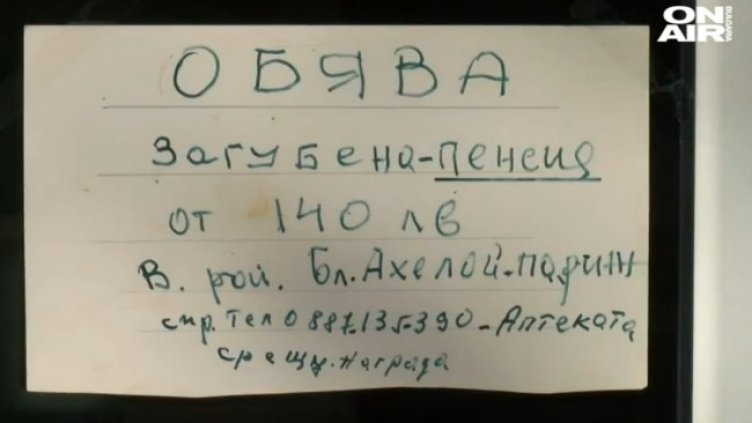 ON AIR BULGARIA
ОБЯВА
Загубена-пенсия
от 140 лв
В. рой. Бл. Ахелой-париж
спр. тел 0887.135-390-Аптеката
срещу. награда